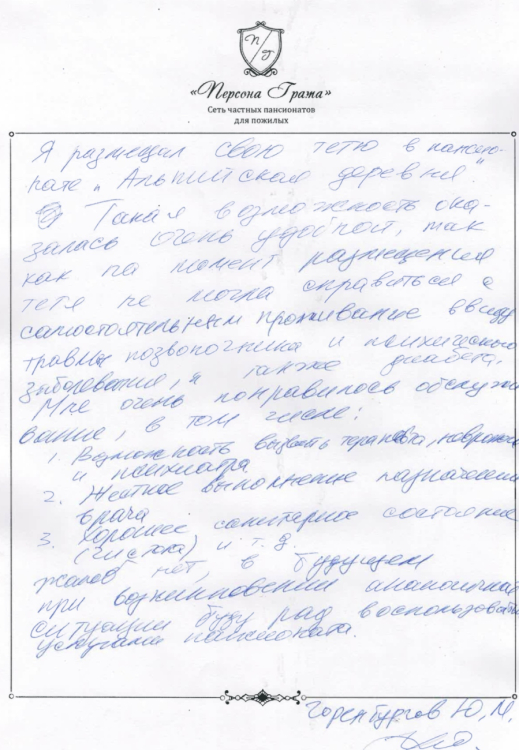 П/Г
«Персона Грата»
Сеть частных пансионатов
для пожилых
Я размещал свою тетю в пансио-
нате "Альпийская деревня".
Такая возможность ока-
залась очень удобной, так
как на момент размещения
тетя не могла справиться с
самостоятельным проживание ввиду
травмы позвоночника и психического
заболевания, а также диабета.
Мне очень понравилось обслужи
вание, в том числе:
1. Возможность вызвать терапевта, невролога
и психиатра
2. Жесткое выполнение назначений
врача
3. Хорошее санитарное состояние
(чистота) и т.д.
Жалоб нет, в будущем
при возникновении аналогичной
ситуации буду рад воспользоваться
услугами пансионата.
Горенбургов Ю.М.